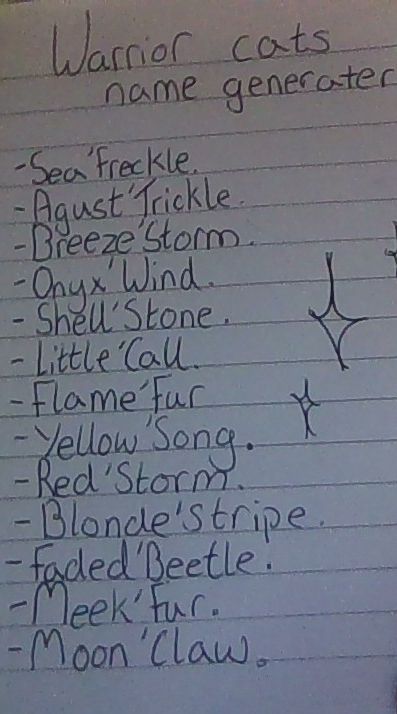 Warrior cats
name generater
-Sea'freckle.
-Agust'Trickle.
-Breeze'Storm.
-Onyx'Wind.
-Shell'Stone.
-Little'Call.
-Flame'fur
-Yellow'Song.
-Red'Storm.
-Blonde'stripe.
-faded'Beetle.
-Meek'fur.
-Moon'Claw.